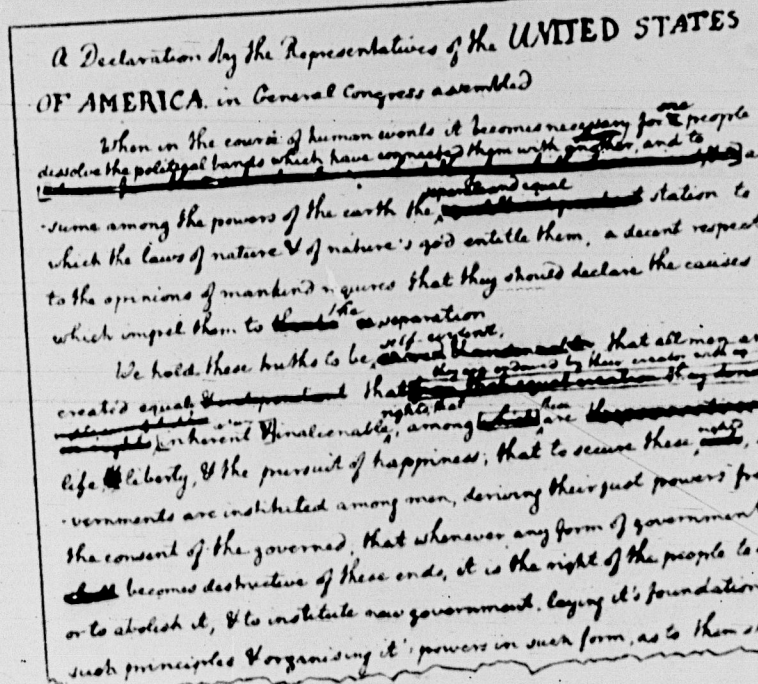 A Declaration by the Representatives of the UNITED STATES
OF AMERICA. in General Congress assembled
When in the course of human events it becomes necessary for one people
dissolve the political bands which have connected them with another, and to
-sume among the powers of the earth the separate and equal station to
which the laws of nature & of nature's god entitle them, a decent respect
to the opinions of mankind requires that they should declare the causes
which impel them to the separation
We hold these truths to be self-evident, that all men are
created equal that they are endowed by their creator with
inherent & inalienable rights, that among these are
life liberty, & the pursuit of happiness; that to secure these rights,
-vernments are instituted among men, deriving their just powers from
the consent of the governed, that whenever any form of government
becomes destructive of these ends, it is the right of the people to
or to abolish it, & to institute new government. laying it's foundation
such principles & organising it's powers in such form, as to them